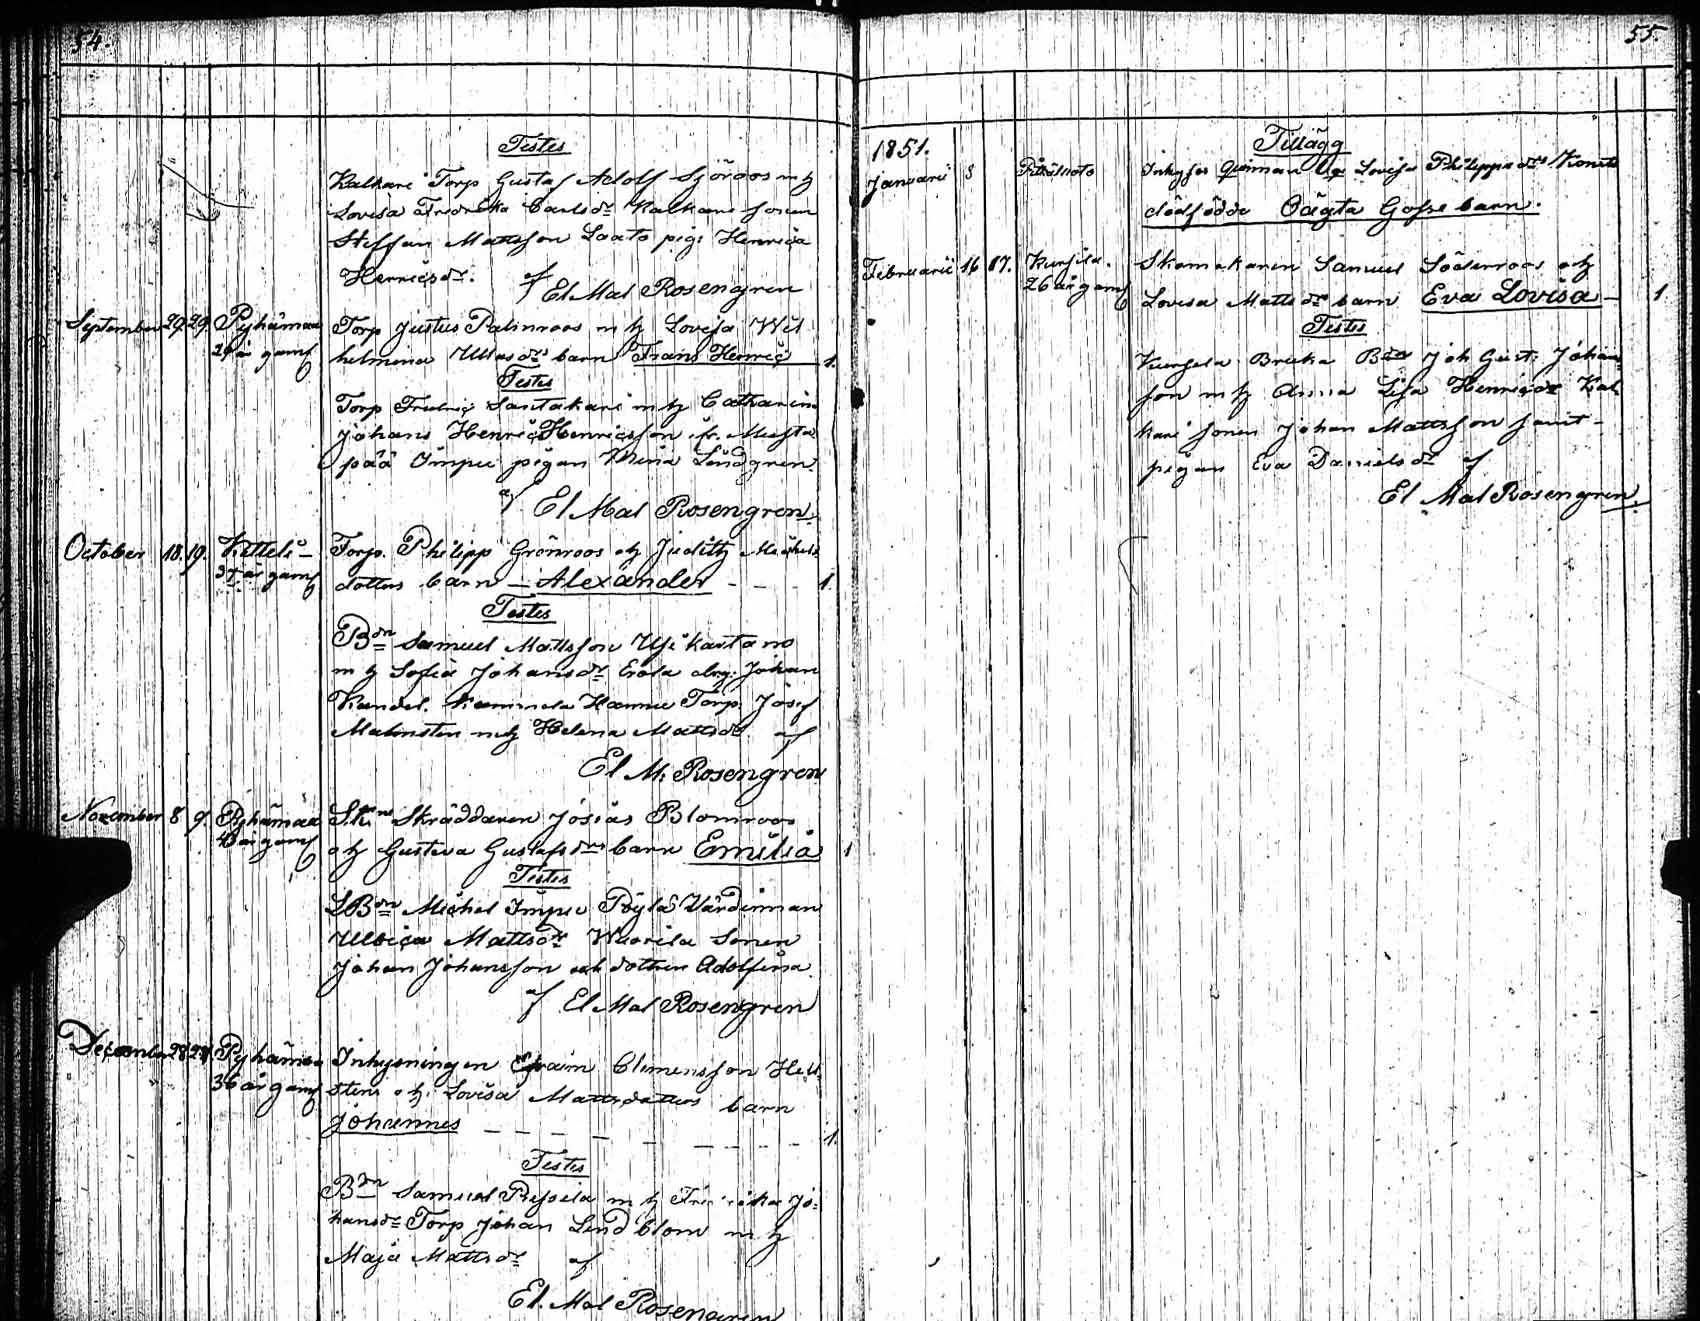 54.
Testes
Kalkare Torp Gustaf Adolf Sjöroos m h
Lovisa Fredrika Carlsdr Kalkare sonen
Steffan Mattsson Laato pig: Henrica
Henricsdr. af
El Mal Rosengren
September 29 29 Pyhämaa Torp Justus Palmroos m h Lovisa Wil
år gaml helmina dr barn Frans Henric 1.
Testes
Torp Fredric Santakari m h Catharin
Johans Henric Henricsson fr.
pää Impu pigan Mina Lindgren
af El Mal Rosengren
October 18. 19. Ketteli - Torp. Philipp Grönroos oh Judith Michels
år gaml dotters barn - Alexander - - - 1.
Testes
Bdn Samuel Mattsson Ylikartano
m h Sofia Johansdr Erola drg: Johan
Hannu Torp. Josef
Malmsten m h Helena Mattsdr af
El M: Rosengren
November 8 9. Pyhämaa Skräddaren Josias Blomroos
år gaml oh Gustava Gustafsdrs barn Emilia 1
Testes
Bdn Michel Impu Pöylä Värdinnan
Ulrica Mattsdr Wuorila Sonen
Johan Johansson och dottren Adolfina
af El Mal Rosengren
December 28 28 Pyhämaa Inhysningen Efraim Clemensson Hell
36 år gaml sten oh Lovisa Mattsdotters barn
Johannes - - - - - - - 1.
Testes
Bdn Samuel m h Fredrika Jo-
hansdr Torp Johan Lindblom m h
Maja Mattsdr af
El. Mal Rosengren
55.
1851. Tillägg
Januarii Lovisa Philippsdrs
dödfödde Oägta Gosse barn.
Februarii 16 17. Kursila. Skomakaren Samuel Söderroos oh
26 år gaml Lovisa Mattsdrs barn Eva Lovisa - 1
Testes
Kursila Bdn Joh Gust: Johan
son m h Anna Lisa Henricsdr Kal
kari sonen Johan Mattsson samt
pigan Eva Danielsdr af
El Mal Rosengren